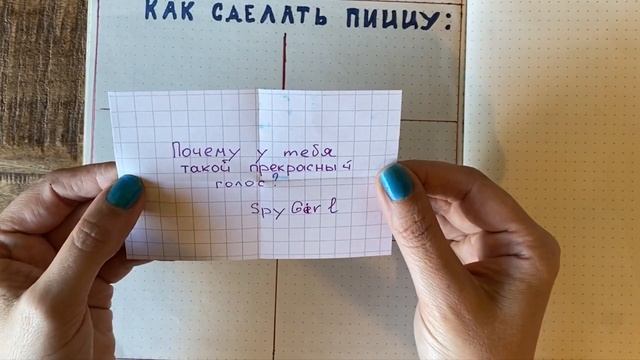 КАК СДЕЛАТЬ ПИЦЦУ:
Почему у тебя
такой прекрасный
голос?
Spy Girl